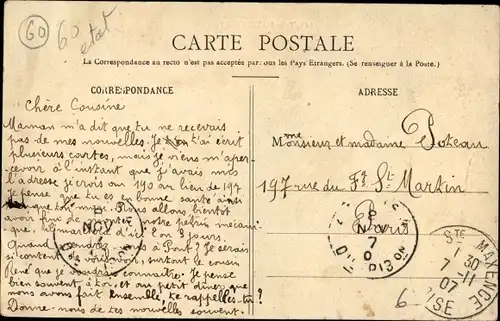 60
60
etat
CARTE POSTALE
La Correspondance au recto n'est pas acceptée par tous les Pays Etrangers. (Se renseigner à la Poste.)
CORRESPONDANCE
Chère Cousine
Maman m'a dit que tu ne recevais
pas de mes nouvelles. Je t'ai écrit
plusieurs cartes, mais je viens m'aper-
cevoir à l'instant que j'avais mis
l'adresse je crois au 190 au lieu de 197
Je pense que tu es en bonne santé ainsi
que Nous allons bientôt
avoir fini de notre pétrin mécani-
que, 3 jours.
Quand à Pont? Je serais
si content de vous voir, surtout le cousin
René que je voudrais connaître. Je pense
bien souvent, à toi, et au petit dîner que
nous avons fait ensemble, te rappelles-tu?
Donne nous de tes nouvelles souvent.
ADRESSE
Monsieur et madame Poteau
197 rue du Fg St. Martin
Paris
STE MAXENCE
1 30
7-11
07
OISE
6